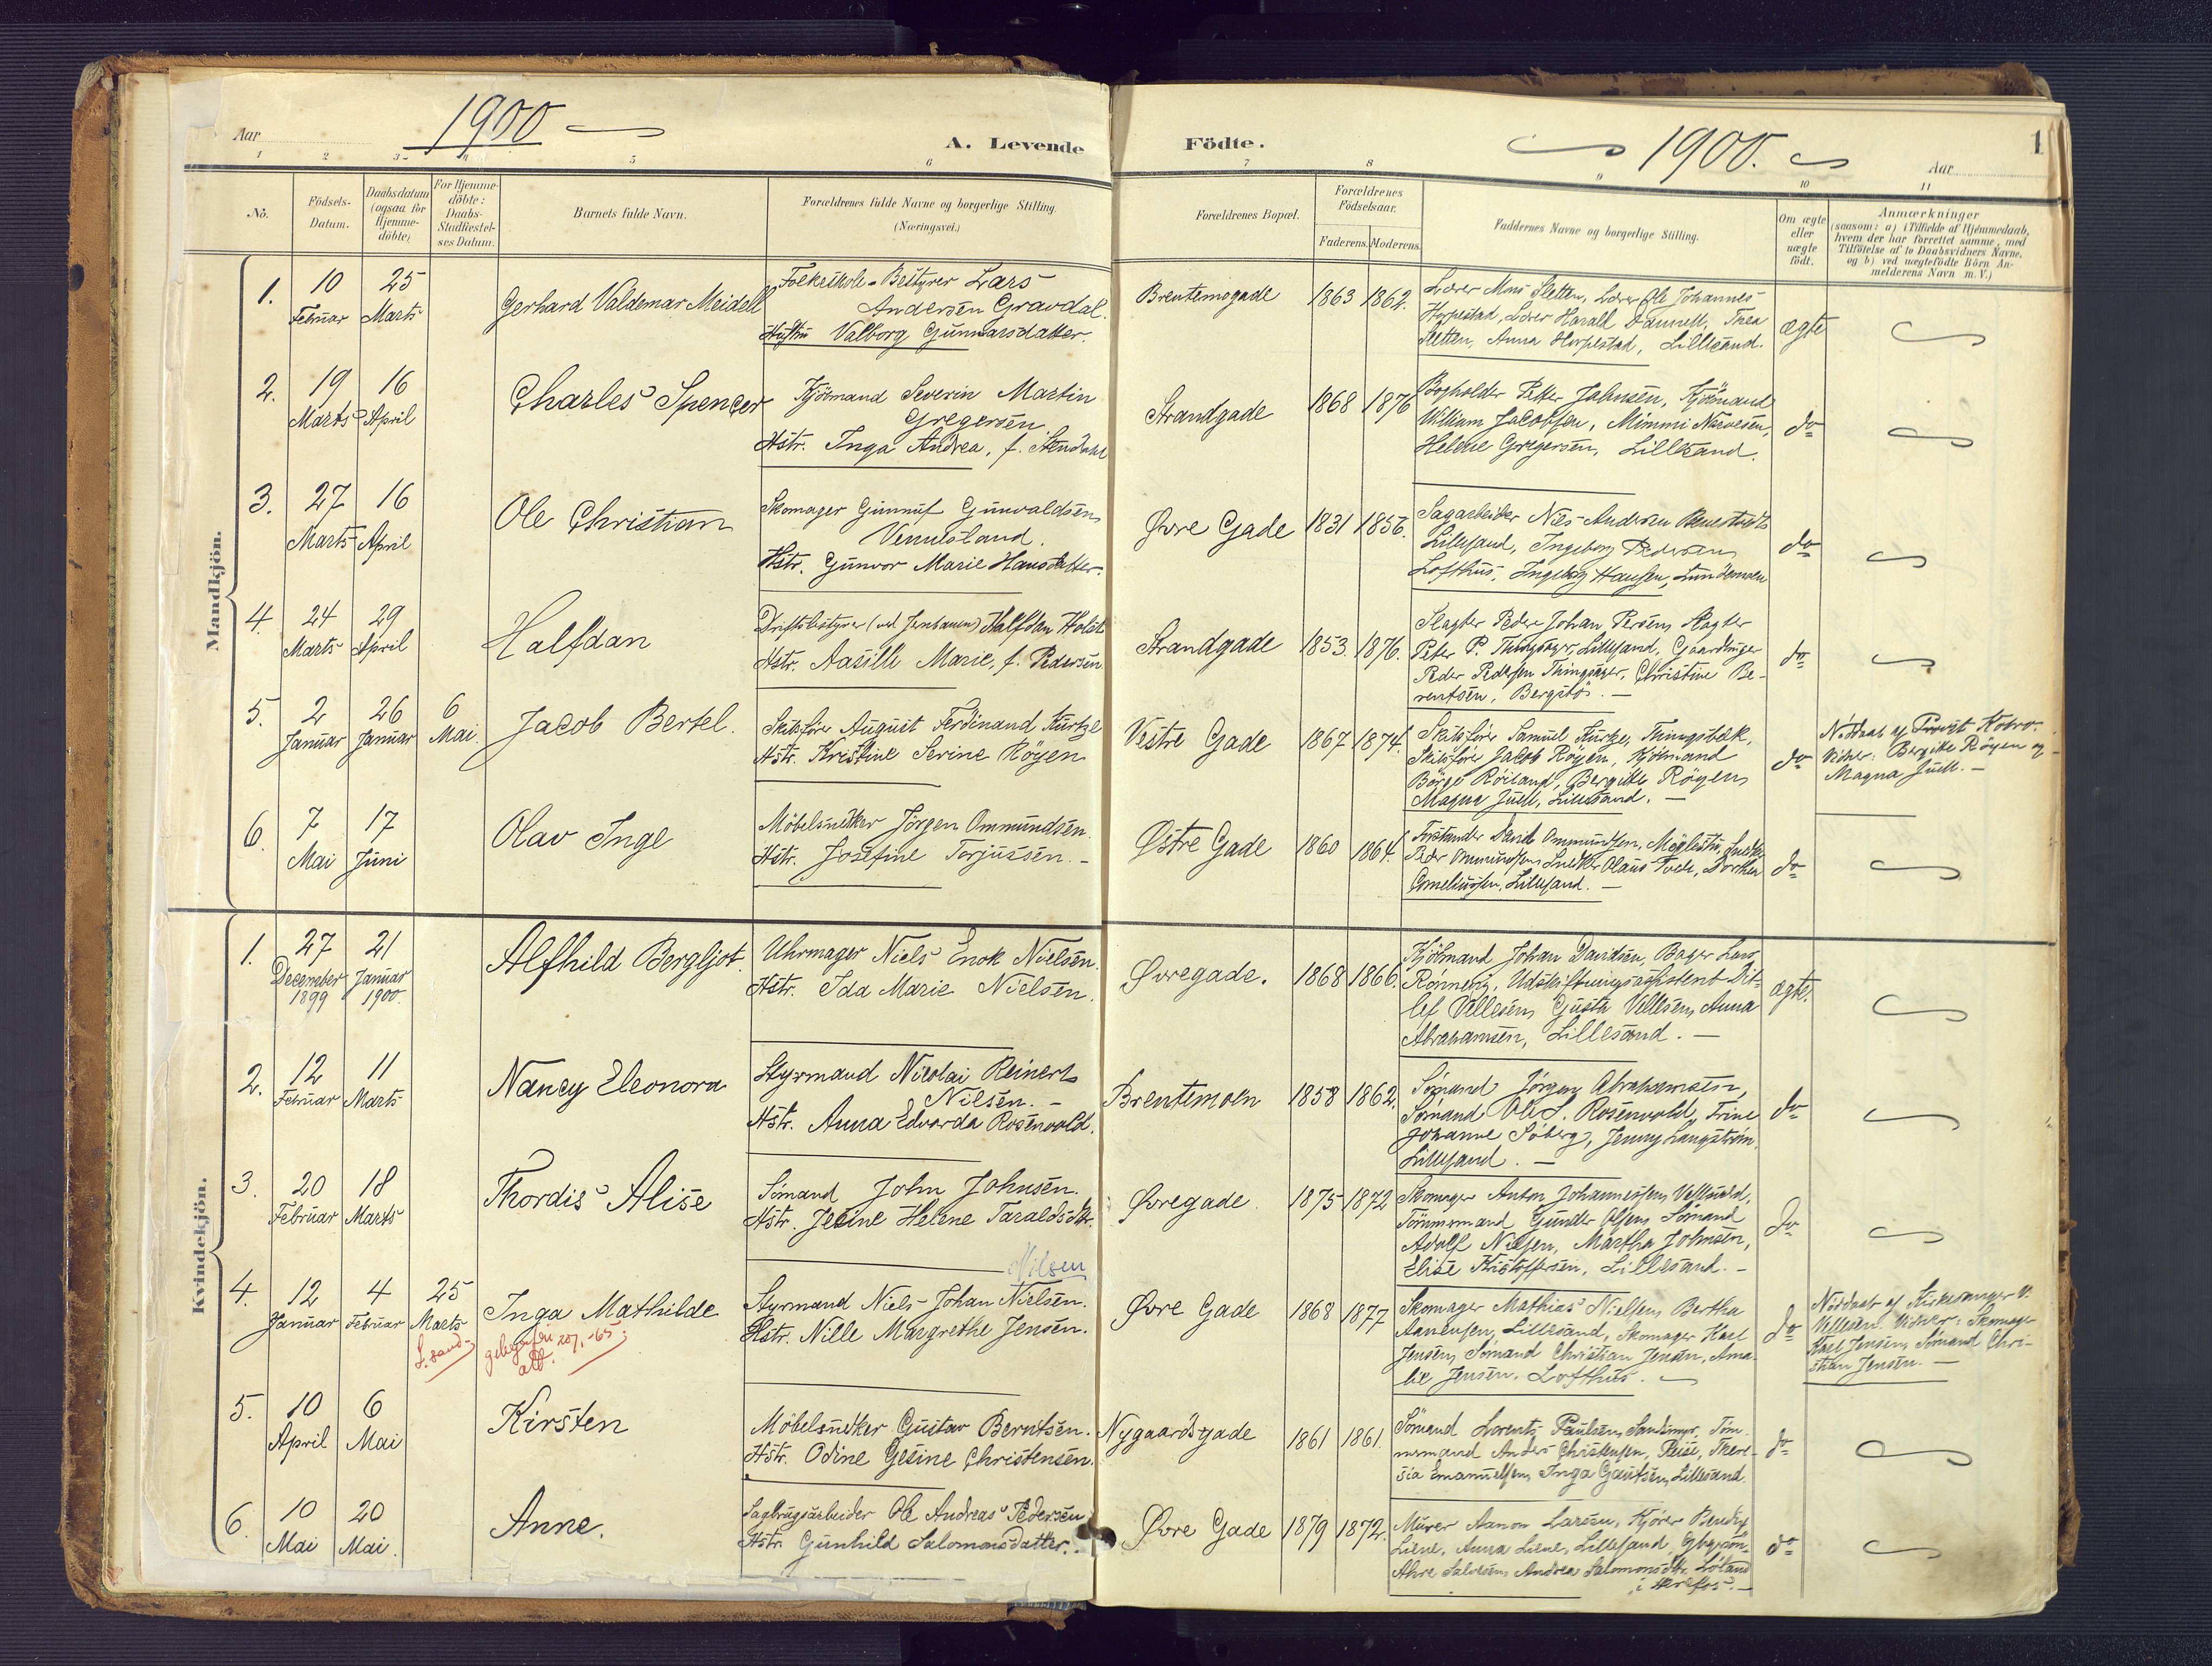 Aar 1900
A. Levende
1 2 3 4 5 6
No.
Födsels-
Datum.
Daabsdatum
(ogsaa for
Hjemme-
döbte)
For Hjemme-
döbte:
Daabs-
Stadfæstel-
ses Datum.
Barnets fulde Navn.
Forældrenes fulde Navne og borgerlige Stilling.
(Næringsvei.)
Födte.
1900.
Aar
1
7 8 9 10 11
Forældrenes Bopæl.
Forældrenes
Födselsaar.
Faderens. Moderens.
Faddernes Navne og borgerlige Stilling.
Om ægte
eller
uægte
födt.
Anmærkninger
(saasom: a) i Tilfælde af Hjemmedaab,
hvem der har forrettet samme, med
Tilföielse af to Daabsvidners Navne,
og b) ved uægtefödte Börn An-
melderens Navn m. V.)
Mandkjön.
1. 10 Februar 25 Marts
Gerhard Valdemar Meidell
Folkeskole-Bestyrer Lars
Andersen Gravdal.
Hustru Valborg Gunnarsdatter.
Brentemogade 1863 1862.
Lærer Mons Sletten, Lærer Ole Johannes
Horpestad, Lærer Harald Dannell, Thea
Sletten, Anna Horpestad, Lillesand.
ægte
2. 19 Marts 16 April
Charles Spencer
Kjömand Severin Martin
Gregersen
Hstr. Inga Andrea, f. Stendahl
Strandgade 1868 1876
Bogholder Peter Jahnsen, Kjömand
William Jacobsen, Mimmi Narvesen,
Helene Gregersen, Lillesand.
do
3. 27 Marts 16 April
Ole Christian
Skomager Gunnuf Gunvaldsen
Vennesland.
Hstr. Gunvor Marie Hansdatter.
Øvre Gade 1831 1856.
Sagarbeider Nils Andersen
Lillesand, Ingeborg Pedersen
Lofthus, Ingeborg Hansen,
do
4. 24 Marts 29 April
Halfdan
Driftsbestyrer (ved Jernbanen) Halfdan Holst
Hstr. Aasille Marie, f. Pedersen
Strandgade 1853. 1876.
Slagter Peder Johan Persen, Slagter
Peter P. Thingsager, Lillesand, Gaardbruger
Peder Pedersen Thingsager, Christine Be-
rentsen, Bergstö. —
do
5. 2 Januar 26 Januar 6 Mai
Jacob Bertel.
Skibsfører August Ferdinand Kurtze
Hstr. Kristine Serine Röyen
Vestre Gade 1867 1874.
Skibsfører Samuel Kurtze, Thingsbæk,
Skibsfører Jacob Röyen, Kjöbmand
Börge Röiland, Bergitte Röyen,
Magna Juell, Lillesand. —
do
Nöddöbt af Provst
Vidner: Bergitte Röyen og
Magna Juell. —
6. 7 Mai 17 Juni
Olav Inge
Möbelsnedker Jörgen Ommundsen.
Hstr. Josefine Torjussen. —
Østre Gade 1860 1864.
Forstander David Ommundsen, Möglestu, Snedker
Peder Ommundsen, Snedker Olaus Tvede, Dorthea
Corneliussen, Lillesand. —
do
Kvindekjön.
1. 27 December 1899 21 Januar 1900.
Alfhild Bergljot.
Uhrmager Niels Enok Nielsen.
Hstr. Ida Marie Nielsen.
Øvregade. 1868 1866.
Kjöbmand Johan Davidsen, Bager Lars
Rönning, Udskiftningsassistent Dit-
lef Vellesen, Gusta Vellesen, Anna
Abrahamsen, Lillesand. —
ægte.
2. 12 Februar 11 Marts
Nancy Eleonora
Styrmand Nicolai Reinert
Nilsen. —
Hstr. Anna Edvarda Rosenvold.
Brentemoen 1858 1862.
Sömand Jörgen Abrahamsen,
Sömand Ole S. Rosenvold, Trine
Johanne Söberg, Jenny Langström,
Lillesand. —
do
3. 20 Februar 18 Marts
Thordis Alise
Sömand John Johnsen.
Hstr. Jesine Helene Taraldsdtr.
Øvregade 1875 1872
Skomager Anton Johannessen,
Tömmermand Gunder Olsen, Sömand
Adolf Nilsen, Martha Johnsen,
Elise Kristoffersen, Lillesand. —
do
Nilsen
4. 12 Januar 4 Februar 25 Marts
L.sand
Inga Mathilde
20/1-65
att.
Styrmand Niels Johan Nielsen.
Hstr. Nille Margrethe Jensen.
Øvre Gade 1868 1877
Skomager Mathias Nielsen, Bertha
Aanensen, Lillesand, Skomager Karl
Jensen, Sömand Christian Jensen, Ama-
lie Jensen, Lofthus. —
do
Nöddöbt af Kirkesanger V.
Vellesen. Vidner: Skomager
Karl Jensen, Sömand Chri-
stian Jensen. —
5. 10 April 6 Mai
Kirsten
Möbelsnedker Gustav Berntsen.
Hstr. Odine Gesine Christensen.
Nygaardsgade 1861 1861.
Sömand Lorents Paulsen, Sandsmyr, Töm-
mermand Anders Christensen, There-
sia Emanuelsen, Inga Gautesen, Lillesand.
do
6. 10 Mai 20 Mai.
Anne.
Sagbrugsarbeider Ole Andreas Pedersen
Hstr. Gunhild Salomonsdatter.
Øvre Gade 1879 1872.
Murer Aanon Larsen, Kjörer Bendix
Liene, Anna Liene, Lillesand,
Salvesen, Andrea Salomonsdtr.
do